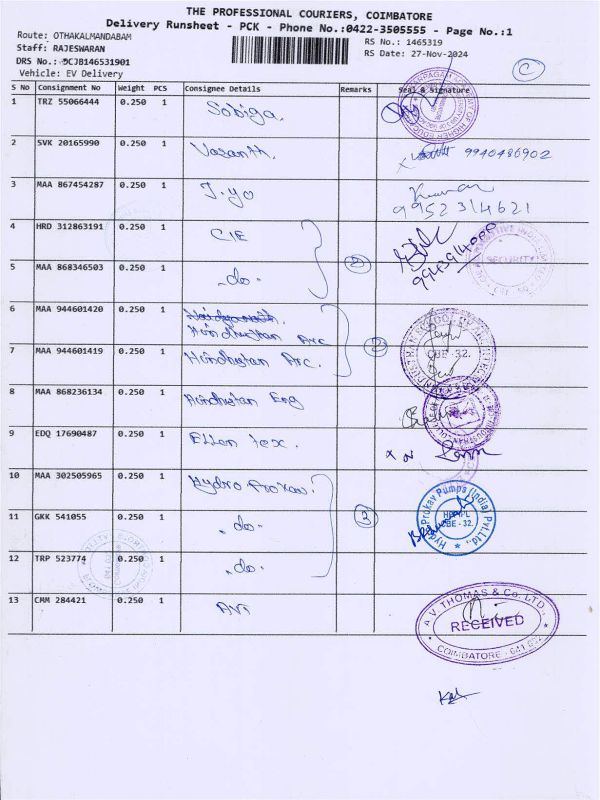 THE PROFESSIONAL COURIERS, COIMBATORE
Delivery Runsheet - PCK - Phone No.:0422-3505555 - Page No.:1
Route: OTHAKALMANDABAM
RS No.: 1465319
Staff: RAJESWARAN
RS Date: 27-Nov-2024
DRS No.: DCJB146531901
Vehicle: EV Delivery
C
S No Consignment No Weight PCS Consignee Details Remarks Seal & Signature
1 TRZ 55066444 0.250 1 Sobiga.
2 SVK 20165990 0.250 1 Vasanth. 9940486902
3 MAA 867454287 0.250 1 J.yo Kumar 9952314621
4 HRD 312863191 0.250 1 CIE 9943914000
5 MAA 868346503 0.250 1 -do- 2 SECURITY
6 MAA 944601420 0.250 1 Hindustan Arc
7 MAA 944601419 0.250 1 Hindustan Arc. 2 CBE-32.
8 MAA 868236134 0.250 1 Hindustan Eng
9 EDQ 17690487 0.250 1 Ellen Tex.
10 MAA 302505965 0.250 1 Hydro Prokav.
11 GKK 541055 0.250 1 -do- 3 Hydro Prokav Pumps (India) Pvt.Ltd., HPPIPL CBE - 32.
12 TRP 523774 0.250 1 -do-
13 CMM 284421 0.250 1 AVT
A.V. THOMAS & Co. LTD.,
RECEIVED
COIMBATORE - 641 032